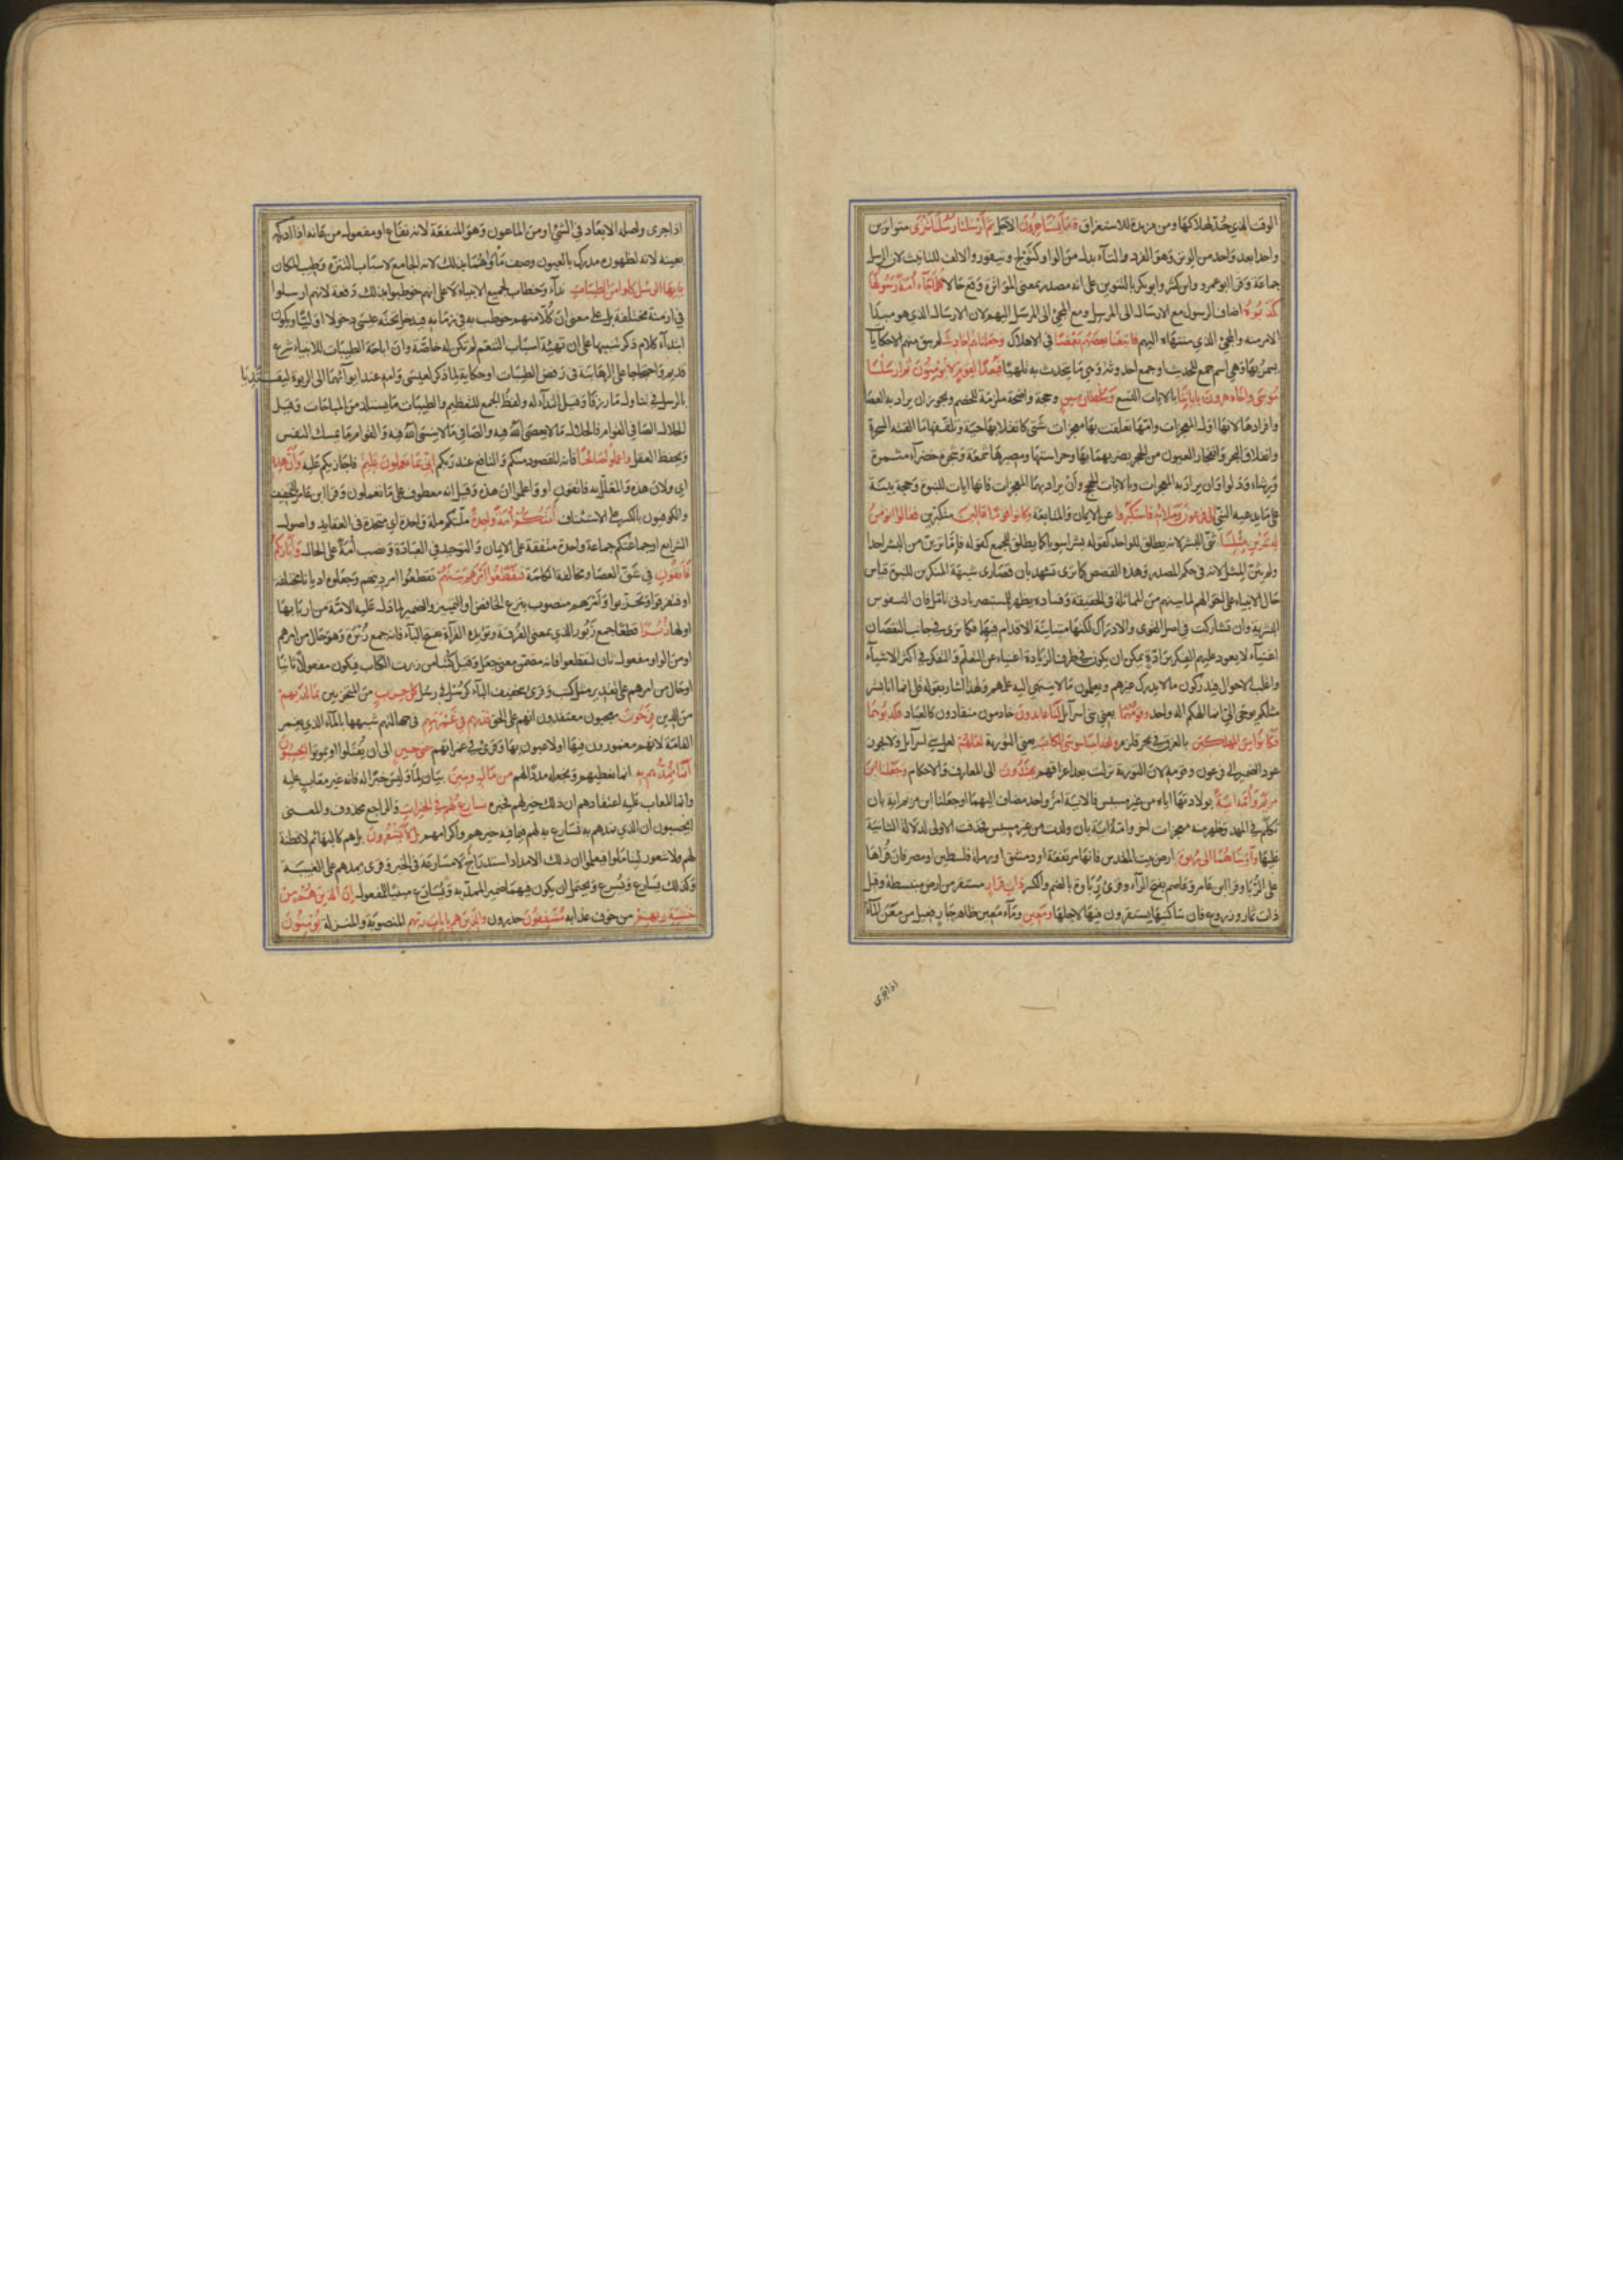 الوقت الذي حُدّ لهلاكها ومن مزيدة للاستغراق وَمَا يَسْتَأْخِرُونَ الاجل ثُمَّ أَرْسَلْنَا رُسُلَنَا تَتْرَى متواترين
واحدا بعد واحد من الوتر وهو الفرد والتاء بدل من الواو كتَوْلج وتيقور والالف للتانيث لان الرسل
جماعة وقرا ابو عمرو وابن كثير وابو بكر بالتنوين على انه مصدر بمعنى المواترة وقع حالا كُلَّمَا جَاءَ أُمَّةً رَسُولُهَا
كَذَّبُوهُ اضاف الرسول مع الارسال الى المرسل ومع المجئ الى المرسل اليهم لان الارسال الذي هو مبدا
الامر منه والمجئ الذي منتهاه اليهم فَأَتْبَعْنَا بَعْضَهُمْ بَعْضًا في الاهلاك وَجَعَلْنَاهُمْ أَحَادِيثَ لم يبق منهم الا حكايا
يسمر بها وهي اسم جمع للحديث او جمع احدوثة وهي ما يتحدث به تلهيا فَبُعْدًا لِقَوْمٍ لَا يُؤْمِنُونَ ثُمَّ أَرْسَلْنَا
مُوسَى وَأَخَاهُ هَرُونَ بِآيَاتِنَا بالايات التسع وَسُلْطَانٍ مُبِينٍ وحجة واضحة ملزمة للخصم ويجوز ان يراد به العصا
وافرادها لانها اول المعجزات وامها تعلقت بها معجزات شتى كانقلابها حية وتلقفها ما افكته السحرة
وانفلاق البحر وانفجار العيون من الحجر بضربهما بها وحراستها ومصيرها شمعة وشجرة خضراء مثمرة
ورشاء ودلوا وان يراد به المعجزات وبالايات الحجج وأن يراد بهما المعجزات فانها ايات للنبوة وحجة بينة
على ما يدعيه النبي إِلَى فِرْعَوْنَ وَمَلَائِهِ فَاسْتَكْبَرُوا عن الايمان والمتابعة وَكَانُوا قَوْمًا عَالِينَ متكبرين فَقَالُوا أَنُؤْمِنُ
لِبَشَرَيْنِ مِثْلِنَا ثنّى البشر لانه يطلق للواحد كقوله بشرا سويا كما يطلق للجمع كقوله فاما ترين من البشر احدا
ولم يثن المثل لانه في حكم المصدر وهذه القصص كما ترى تشهد بان قصارى شبهة المنكرين للنبوة قياس
حال الانبياء على احوالهم لما بينهم من المماثلة في الحقيقة وفساده يظهر للمستبصر بادنى تامل فان النفوس
البشرية وان تشاركت في اصل القوى والادراك لكنها متباينة الاقدام فيها فكما ترى في جانب النقصان
اغبياء لا يعود عليهم الفكر برادّة يمكن ان يكون في طرف الزيادة اغنياء عن التعلم والتفكر في اكثر الاشياء
واغلب الاحوال فيدركون ما لا يدرك غيرهم ويعلمون ما لا ينتهي اليه علمهم ولهذا اشار بقوله قل انما انا بشر
مثلكم يوحى الي انما الهكم اله واحد وَقَوْمُهُمَا يعني بني اسرآيل لَنَا عَابِدُونَ خادمون منقادون كالعباد فَكَذَّبُوهُمَا
فَكَانُوا مِنَ الْمُهْلَكِينَ بالغرق في بحر قلزم وَلَقَدْ آتَيْنَا مُوسَى الْكِتَابَ يعني التورية لَعَلَّهُمْ لعل بني اسرآيل ولا يجوز
عود الضمير الى فرعون وقومه لان التورية نزلت بعد اغراقهم يَهْتَدُونَ الى المعارف والاحكام وَجَعَلْنَا ابْنَ
مَرْيَمَ وَأُمَّهُ آيَةً بولادتها اياه من غير مسيس فالاية امر واحد مضاف اليهما او جعلنا ابن مريم اية بان
تكلم في المهد وظهر منه معجزات اخر وامه اية بان ولدت من غير مسيس فحذفت الاولى لدلالة الثانية
عليها وَآوَيْنَاهُمَا إِلَى رَبْوَةٍ ارض بيت المقدس فانها مرتفعة او دمشق او رملة فلسطين او مصر فان قراها
على الرُّبا وقرا ابن عامر وعاصم بفتح الراء وقرئ رُباوة بالضم والكسر ذَاتِ قَرَارٍ مستقر من ارض منبسطة وقيل
ذات ثمار وزروع فان ساكنيها يستقرون فيها لاجلها وَمَعِينٍ وماء معين ظاهر جار فعيل من معن الماء
اذا جرى
اذا جرى واصله الابعاد في الشئ او من الماعون وهو المنفعة لانه نفاع او مفعول من عانه اذا ادركه
بعينه لانه لظهوره مدرك بالعيون وصف مأواهما بذلك لانه الجامع لاسباب التنزه وطيب المكان
يَا أَيُّهَا الرُّسُلُ كُلُوا مِنَ الطَّيِّبَاتِ نداء وخطاب لجميع الانبياء لا على انهم خوطبوا بذلك دفعة لانهم ارسلوا
في ازمنة مختلفة بل على معنى ان كلا منهم خوطب به في زمانه فيدخل تحته عيسى دخولا اوليا ويكون
ابتداء كلام ذكر تنبيها على ان تهيئة اسباب التنعم لم تكن له خاصة وان اباحة الطيبات للانبياء شرع
قديم واحتجاجا على الرهابنة في رفض الطيبات او حكاية لما ذكر لعيسى وامه عند ايوائهما الى الربوة ليقتديا
بالرسل في تناول ما رزقا وقيل النداء له ولفظ الجمع للتعظيم والطيبات ما يستلذ من المباحات وقيل
الحلال الصافي القوام فالحلال ما لا يعصى الله فيه والصافي ما لا ينسى الله فيه والقوام ما يمسك النفس
ويحفظ العقل وَاعْمَلُوا صَالِحًا فانه المقصود منكم والنافع عند ربكم إِنِّي بِمَا تَعْمَلُونَ عَلِيمٌ فاجازيكم عليه وَأَنَّ هَذِهِ
اي ولان هذه والمعلل به فاتقون او واعلموا ان هذه وقيل انه معطوف على ما تعملون وقرا ابن عامر بالتخفيف
والكوفيون بالكسر على الاستئناف أُمَّتُكُمْ أُمَّةً وَاحِدَةً ملتكم ملة واحدة اي متحدة في العقايد واصول
الشرايع او جماعتكم جماعة واحدة متفقة على الايمان والتوحيد في العبادة ونصب أمة على الحال وَأَنَا رَبُّكُمْ
فَاتَّقُونِ في شق العصا ومخالفة الكلمة فَتَقَطَّعُوا أَمْرَهُمْ بَيْنَهُمْ فتقطعوا امر دينهم وجعلوه اديانا مختلفة
او فتفرقوا وتحزبوا وأمرهم منصوب بنزع الخافض او التمييز والضمير لما دل عليه الامة من اربابها
او لها زُبُرًا قطعا جمع زبور الذي بمعنى الفرقة ويؤيده القراءة بفتح الباء فانه جمع زبرة وهو حال من امرهم
او من الواو او مفعول ثان لتقطعوا فانه متضمن معنى جعل وقيل كتبا من زبرت الكتاب فيكون مفعولا ثانيا
او حال من امرهم على تقدير مثل كتب وقرئ بتخفيف الباء كرسل في رسل كُلُّ حِزْبٍ من المتحزبين بِمَا لَدَيْهِمْ
من الدين فَرِحُونَ معجبون معتقدون انهم على الحق فَذَرْهُمْ فِي غَمْرَتِهِمْ في جهالتهم شبهها بالماء الذي يغمر
القامة لانهم مغمورون فيها او لاعبون بها وقرئ في غمراتهم حَتَّى حِينٍ الى ان يقتلوا او يموتوا أَيَحْسَبُونَ
أَنَّمَا نُمِدُّهُمْ بِهِ انما نعطيهم ونجعله مددا لهم مِنْ مَالٍ وَبَنِينَ بيان لما وليس خبرا له فانه غير معاب عليه
وانما المعاب عليه اعتقادهم ان ذلك خير لهم فخبره نُسَارِعُ لَهُمْ فِي الْخَيْرَاتِ والراجع محذوف والمعنى
ايحسبون ان الذي نمدهم به نسارع به لهم فيما فيه خيرهم واكرامهم بَلْ لَا يَشْعُرُونَ بل هم كالبهائم لا فطنة
لهم ولا شعور ليتاملوا فيعلموا ان ذلك الامداد استدراج لا مسارعة في الخير وقرئ يمدهم على الغيبة
وكذلك يسارع ويسرع ويحتمل ان يكون فيهما ضمير الممدّ به ويُسارَع مبنيا للمفعول إِنَّ الَّذِينَ هُمْ مِنْ
خَشْيَةِ رَبِّهِمْ من خوف عذابه مُشْفِقُونَ حذرون وَالَّذِينَ هُمْ بِآيَاتِ رَبِّهِمْ المنصوبة والمنزلة يُؤْمِنُونَ